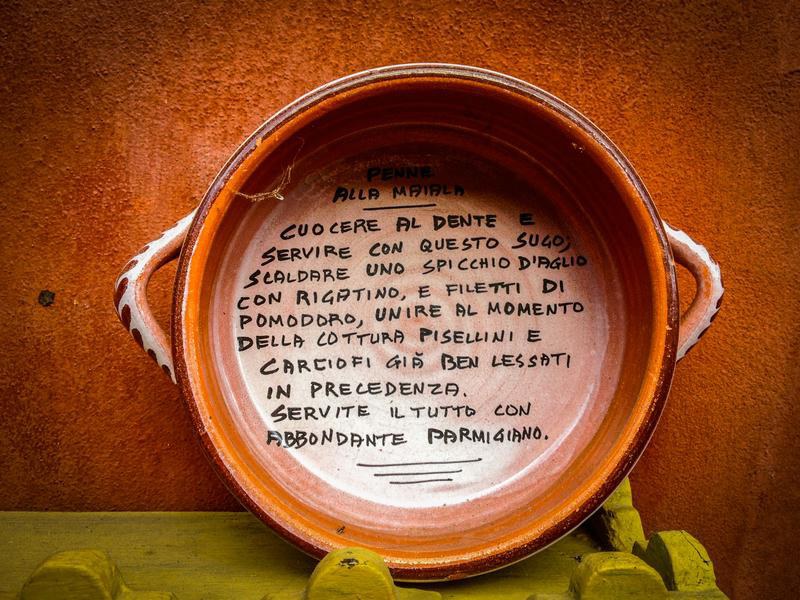 PENNE
ALLA MAIALA
CUOCERE AL DENTE E
SERVIRE CON QUESTO SUGO;
SCALDARE UNO SPICCHIO D'AGLIO
CON RIGATINO, E FILETTI DI
POMODORO, UNIRE AL MOMENTO
DELLA COTTURA PISELLINI E
CARCIOFI GIÀ BEN LESSATI
IN PRECEDENZA.
SERVITE IL TUTTO CON
ABBONDANTE PARMIGIANO.